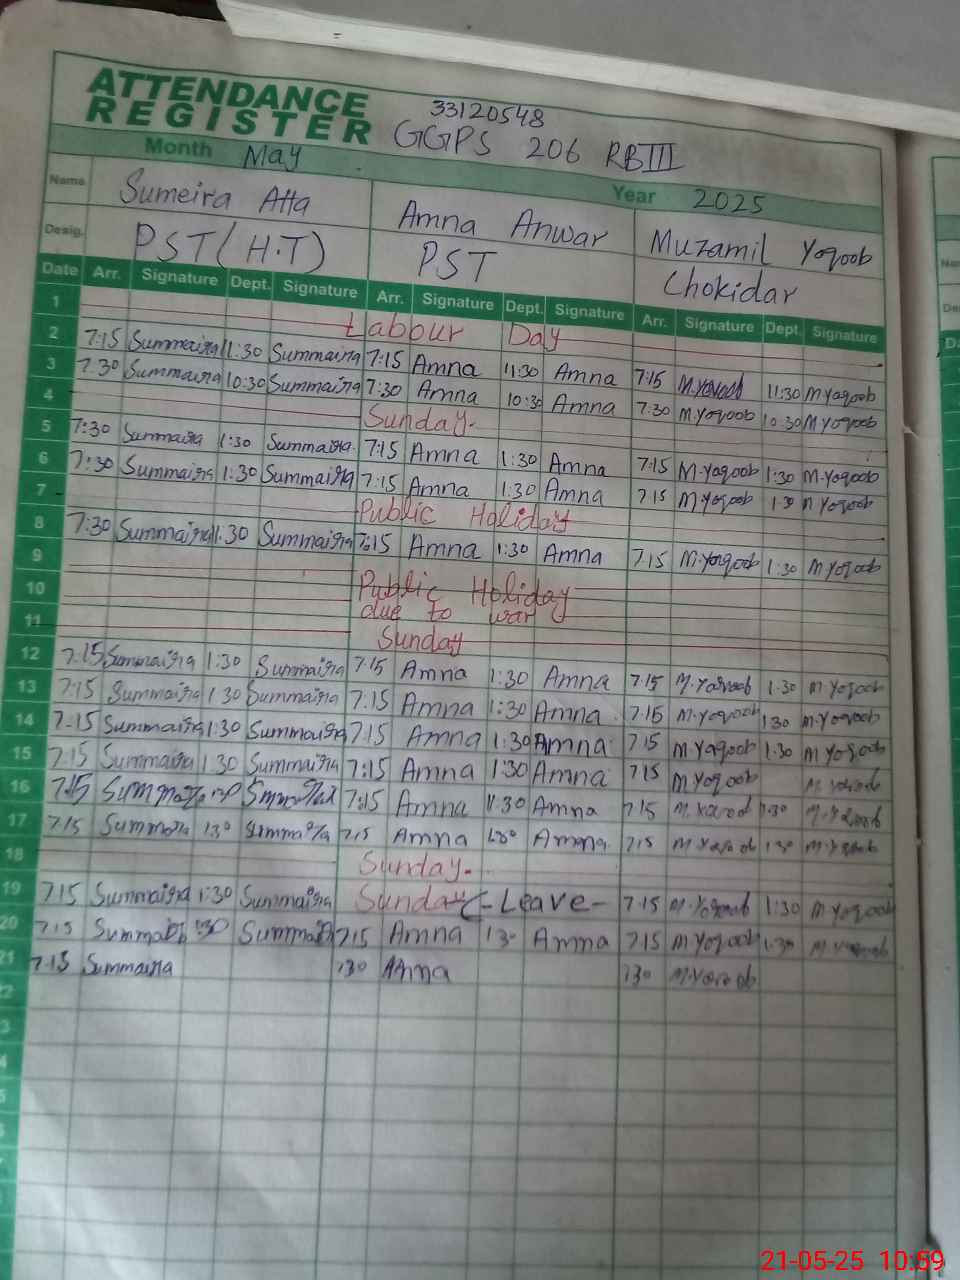 ATTENDANCE
REGISTER
33120548
GGPS 206 RBIII
Month May
Year 2025
Name Sumeira Atta Amna Anwar Muzamil Yaqoob
Desig. PST(H.T) PST Chokidar
Date Arr. Signature Dept. Signature Arr. Signature Dept. Signature Arr. Signature Dept. Signature
1 Labour Day
2 7:15 Summaira 11:30 Summaira 7:15 Amna 11:30 Amna 7:15 M.Yaqoob 11:30 M.Yaqoob
3 7:30 Summaira 10:30 Summaira 7:30 Amna 10:30 Amna 7:30 M.Yaqoob 10:30 M.Yaqoob
4 Sunday.
5 7:30 Summaira 1:30 Summaira 7:15 Amna 1:30 Amna 7:15 M.Yaqoob 1:30 M.Yaqoob
6 7:30 Summaira 1:30 Summaira 7:15 Amna 1:30 Amna 7:15 M.Yaqoob 1:30 M Yaqoob
7 Public Holiday
8 7:30 Summaira 1:30 Summaira 7:15 Amna 1:30 Amna 7:15 M.Yaqoob 1:30 M Yaqoob
9
10 Public Holiday
due to war
11 Sunday
12 7:15 Summaira 1:30 Summaira 7:15 Amna 1:30 Amna 7:15 M.Yaqoob 1:30 M.Yaqoob
13 7:15 Summaira 1:30 Summaira 7:15 Amna 1:30 Amna 7:15 M.Yaqoob 1:30 M.Yaqoob
14 7:15 Summaira 1:30 Summaira 7:15 Amna 1:30 Amna 7:15 M.Yaqoob 1:30 M.Yaqoob
15 7:15 Summaira 1:30 Summaira 7:15 Amna 1:30 Amna 7:15 M.Yaqoob
16 7:15 7:15 Amna 1:30 Amna 7:15 1:30
17 7:15 7:15 Amna Amna 7:15
18 Sunday.
19 7:15 Summaira 1:30 Summaira Sunday (-Leave- 7:15 M.Yaqoob 1:30 M.Yaqoob
20 7:15 1:30 7:15 Amna 1:30 Amna 7:15 M.Yaqoob 1:30
21 7:15 Summaira 730 Amna 730 M.Yaqoob
21-05-25 10:59